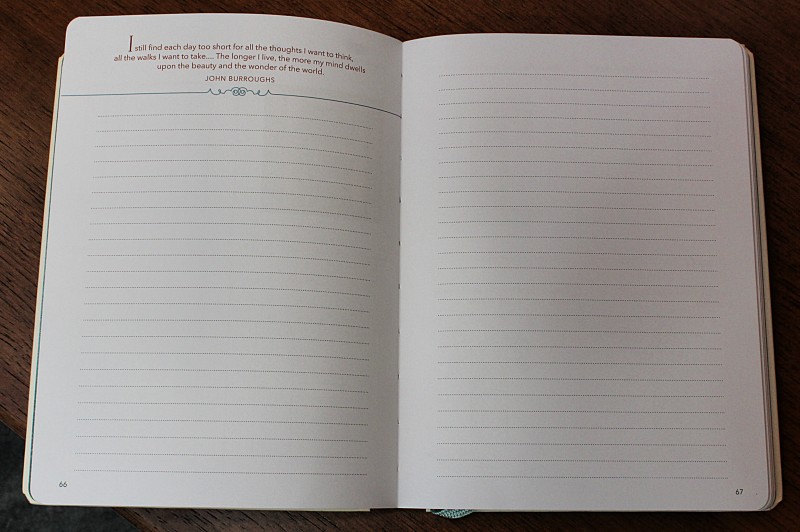 I still find each day too short for all the thoughts I want to think,
all the walks I want to take.... The longer I live, the more my mind dwells
upon the beauty and the wonder of the world.
JOHN BURROUGHS
66
67